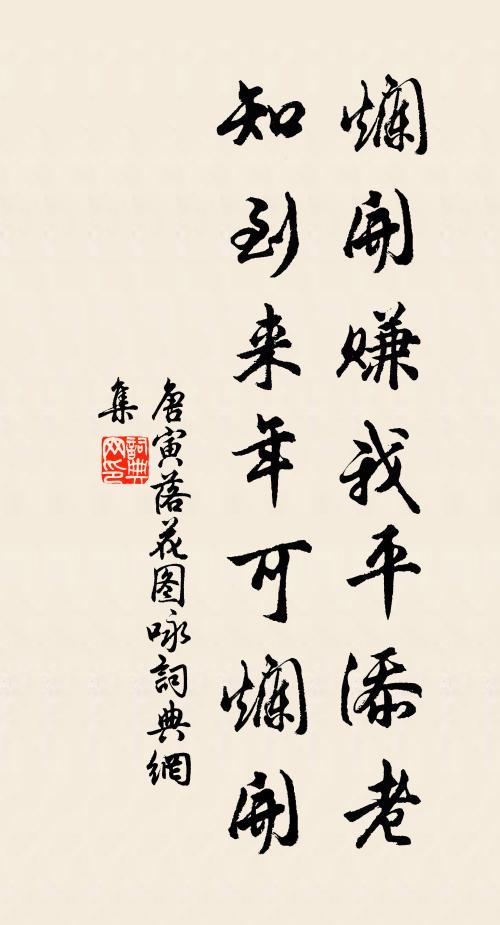 爛開賺我平添老
知到来年可爛開
唐寅落花图咏詞典網
集
詞典网印